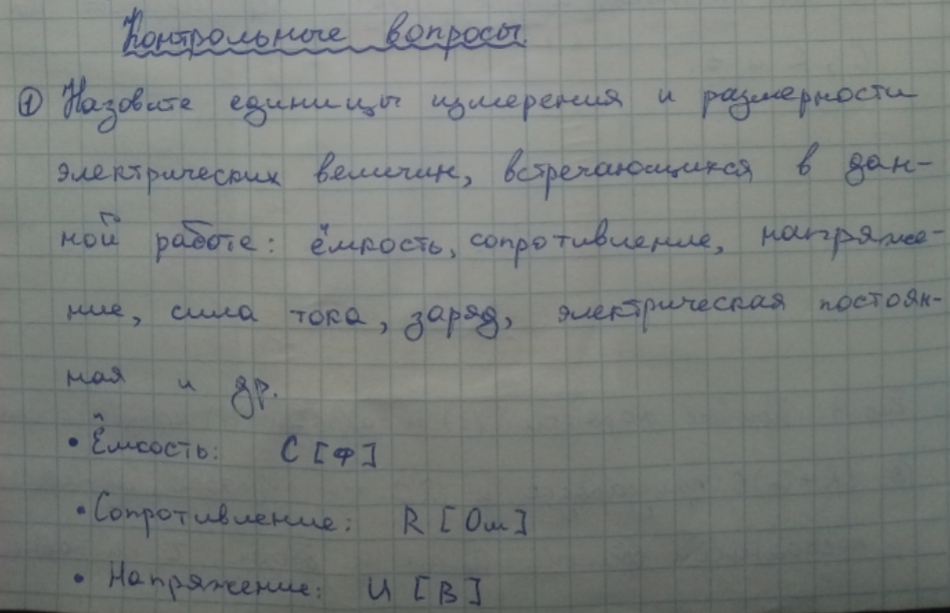 Контрольные вопросы.
① Назовите единицы измерения и размерности
электрических величин, встречающихся в дан-
ной работе: ёмкость, сопротивление, напряже-
ние, сила тока, заряд, электрическая постоян-
ная и др.
• Ёмкость: C [Ф]
• Сопротивление: R [Ом]
• Напряжение: U [В]